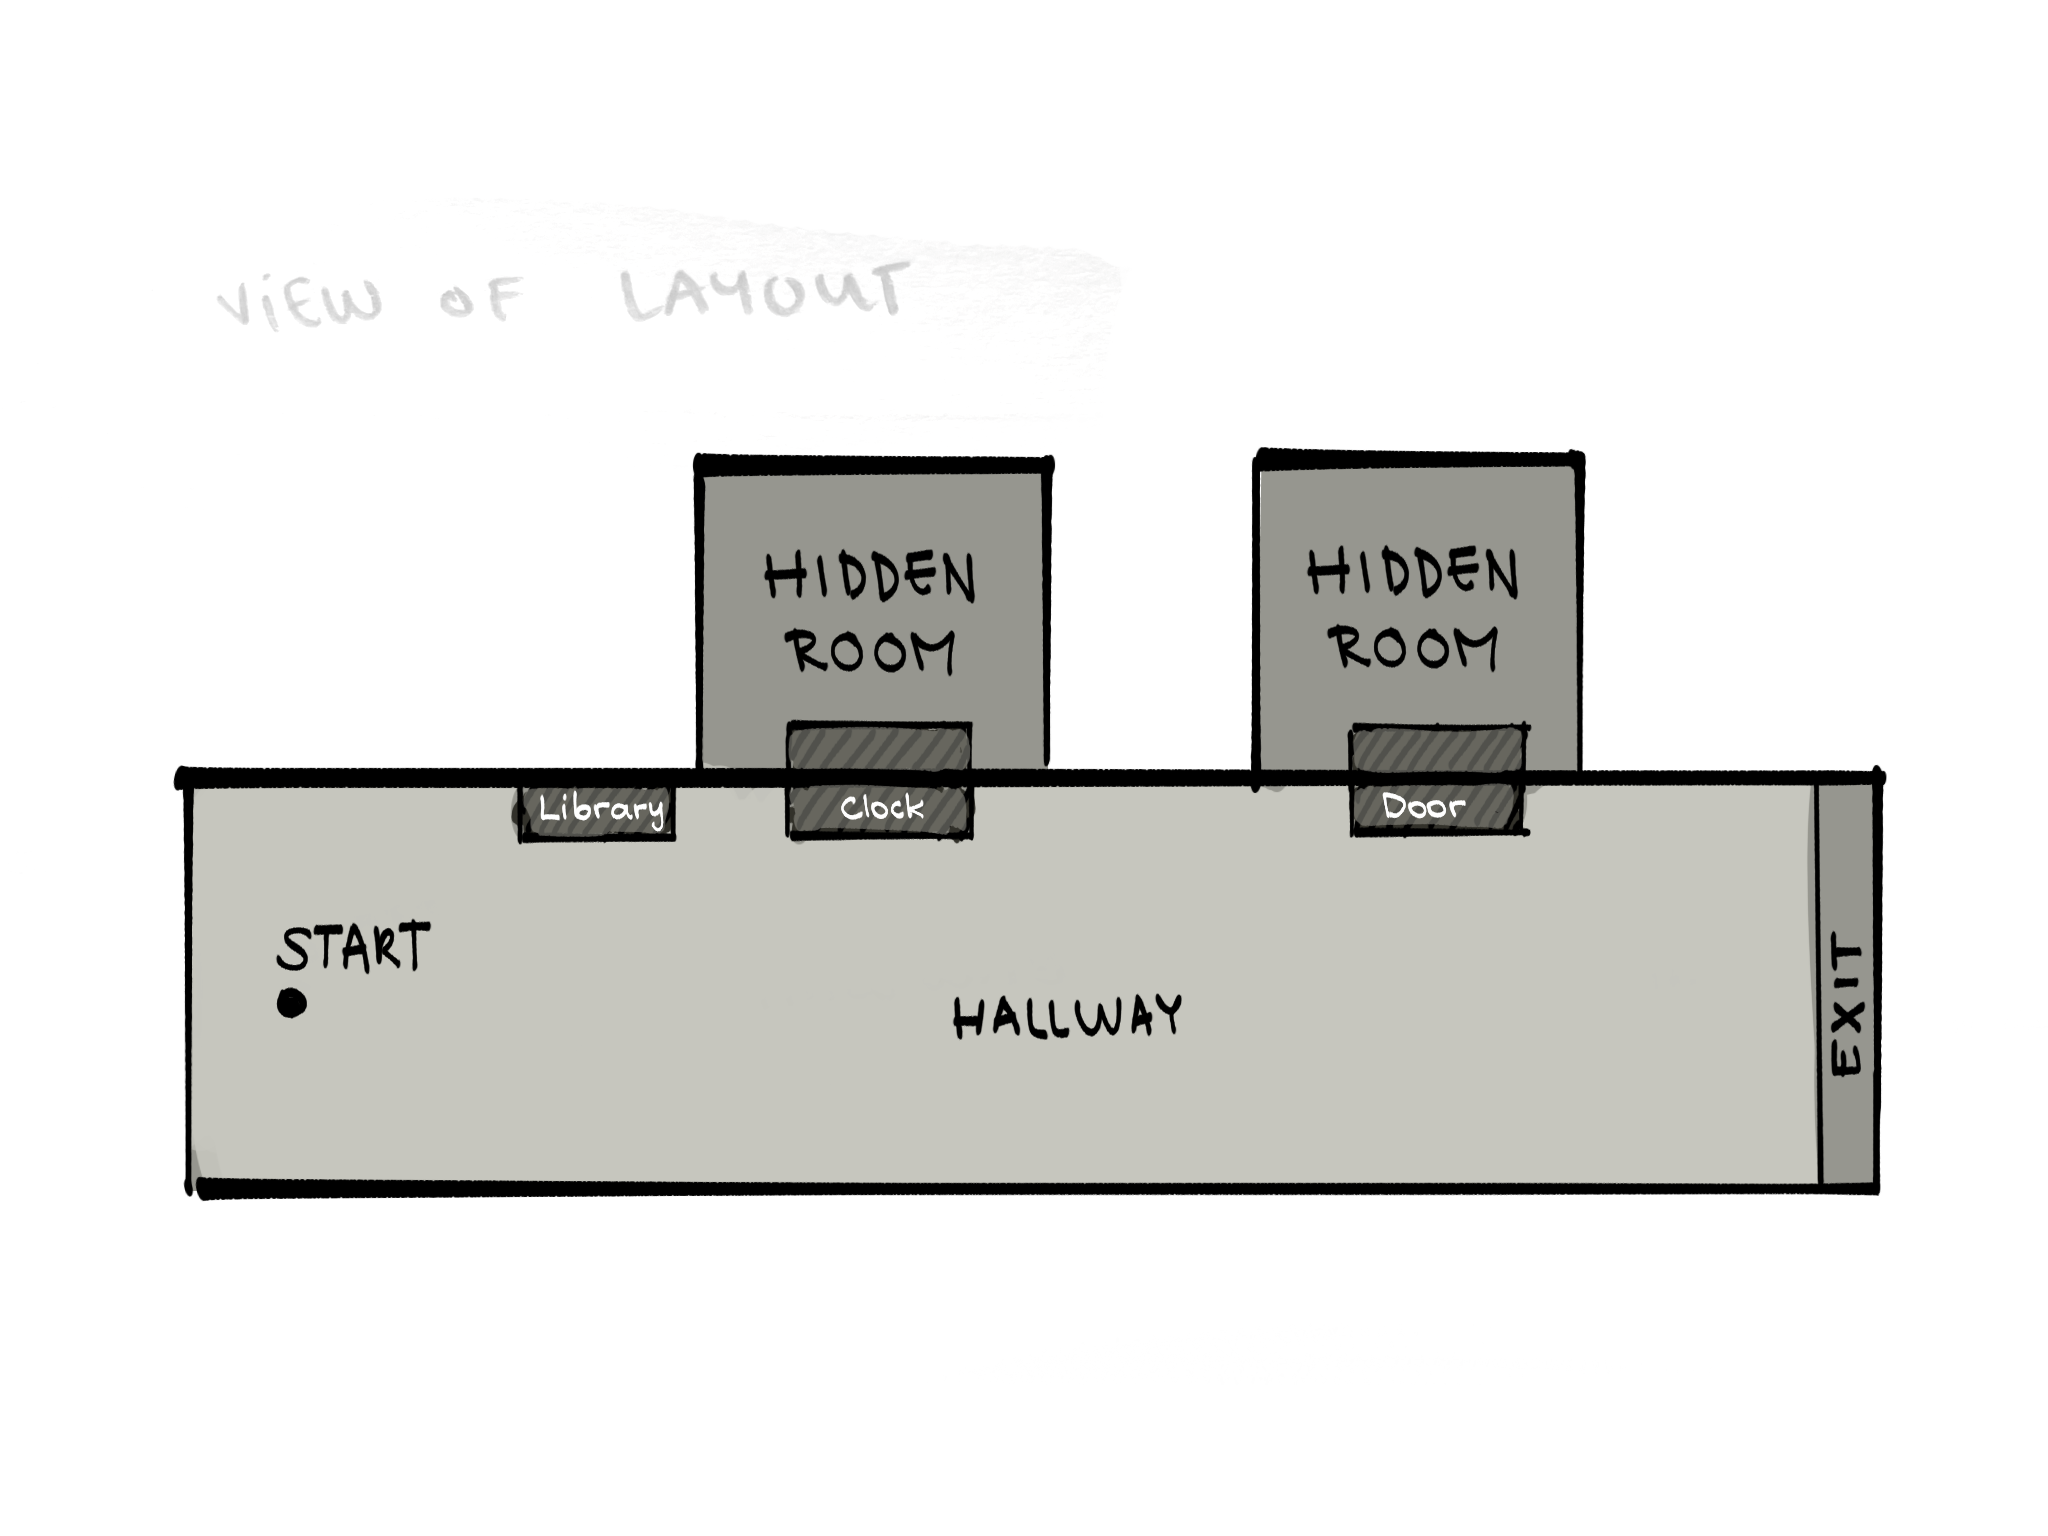 ViEW OF LAYOUT
HIDDEN
ROOM
HIDDEN
ROOM
Library
Clock
Door
START
HALLWAY
EXIT